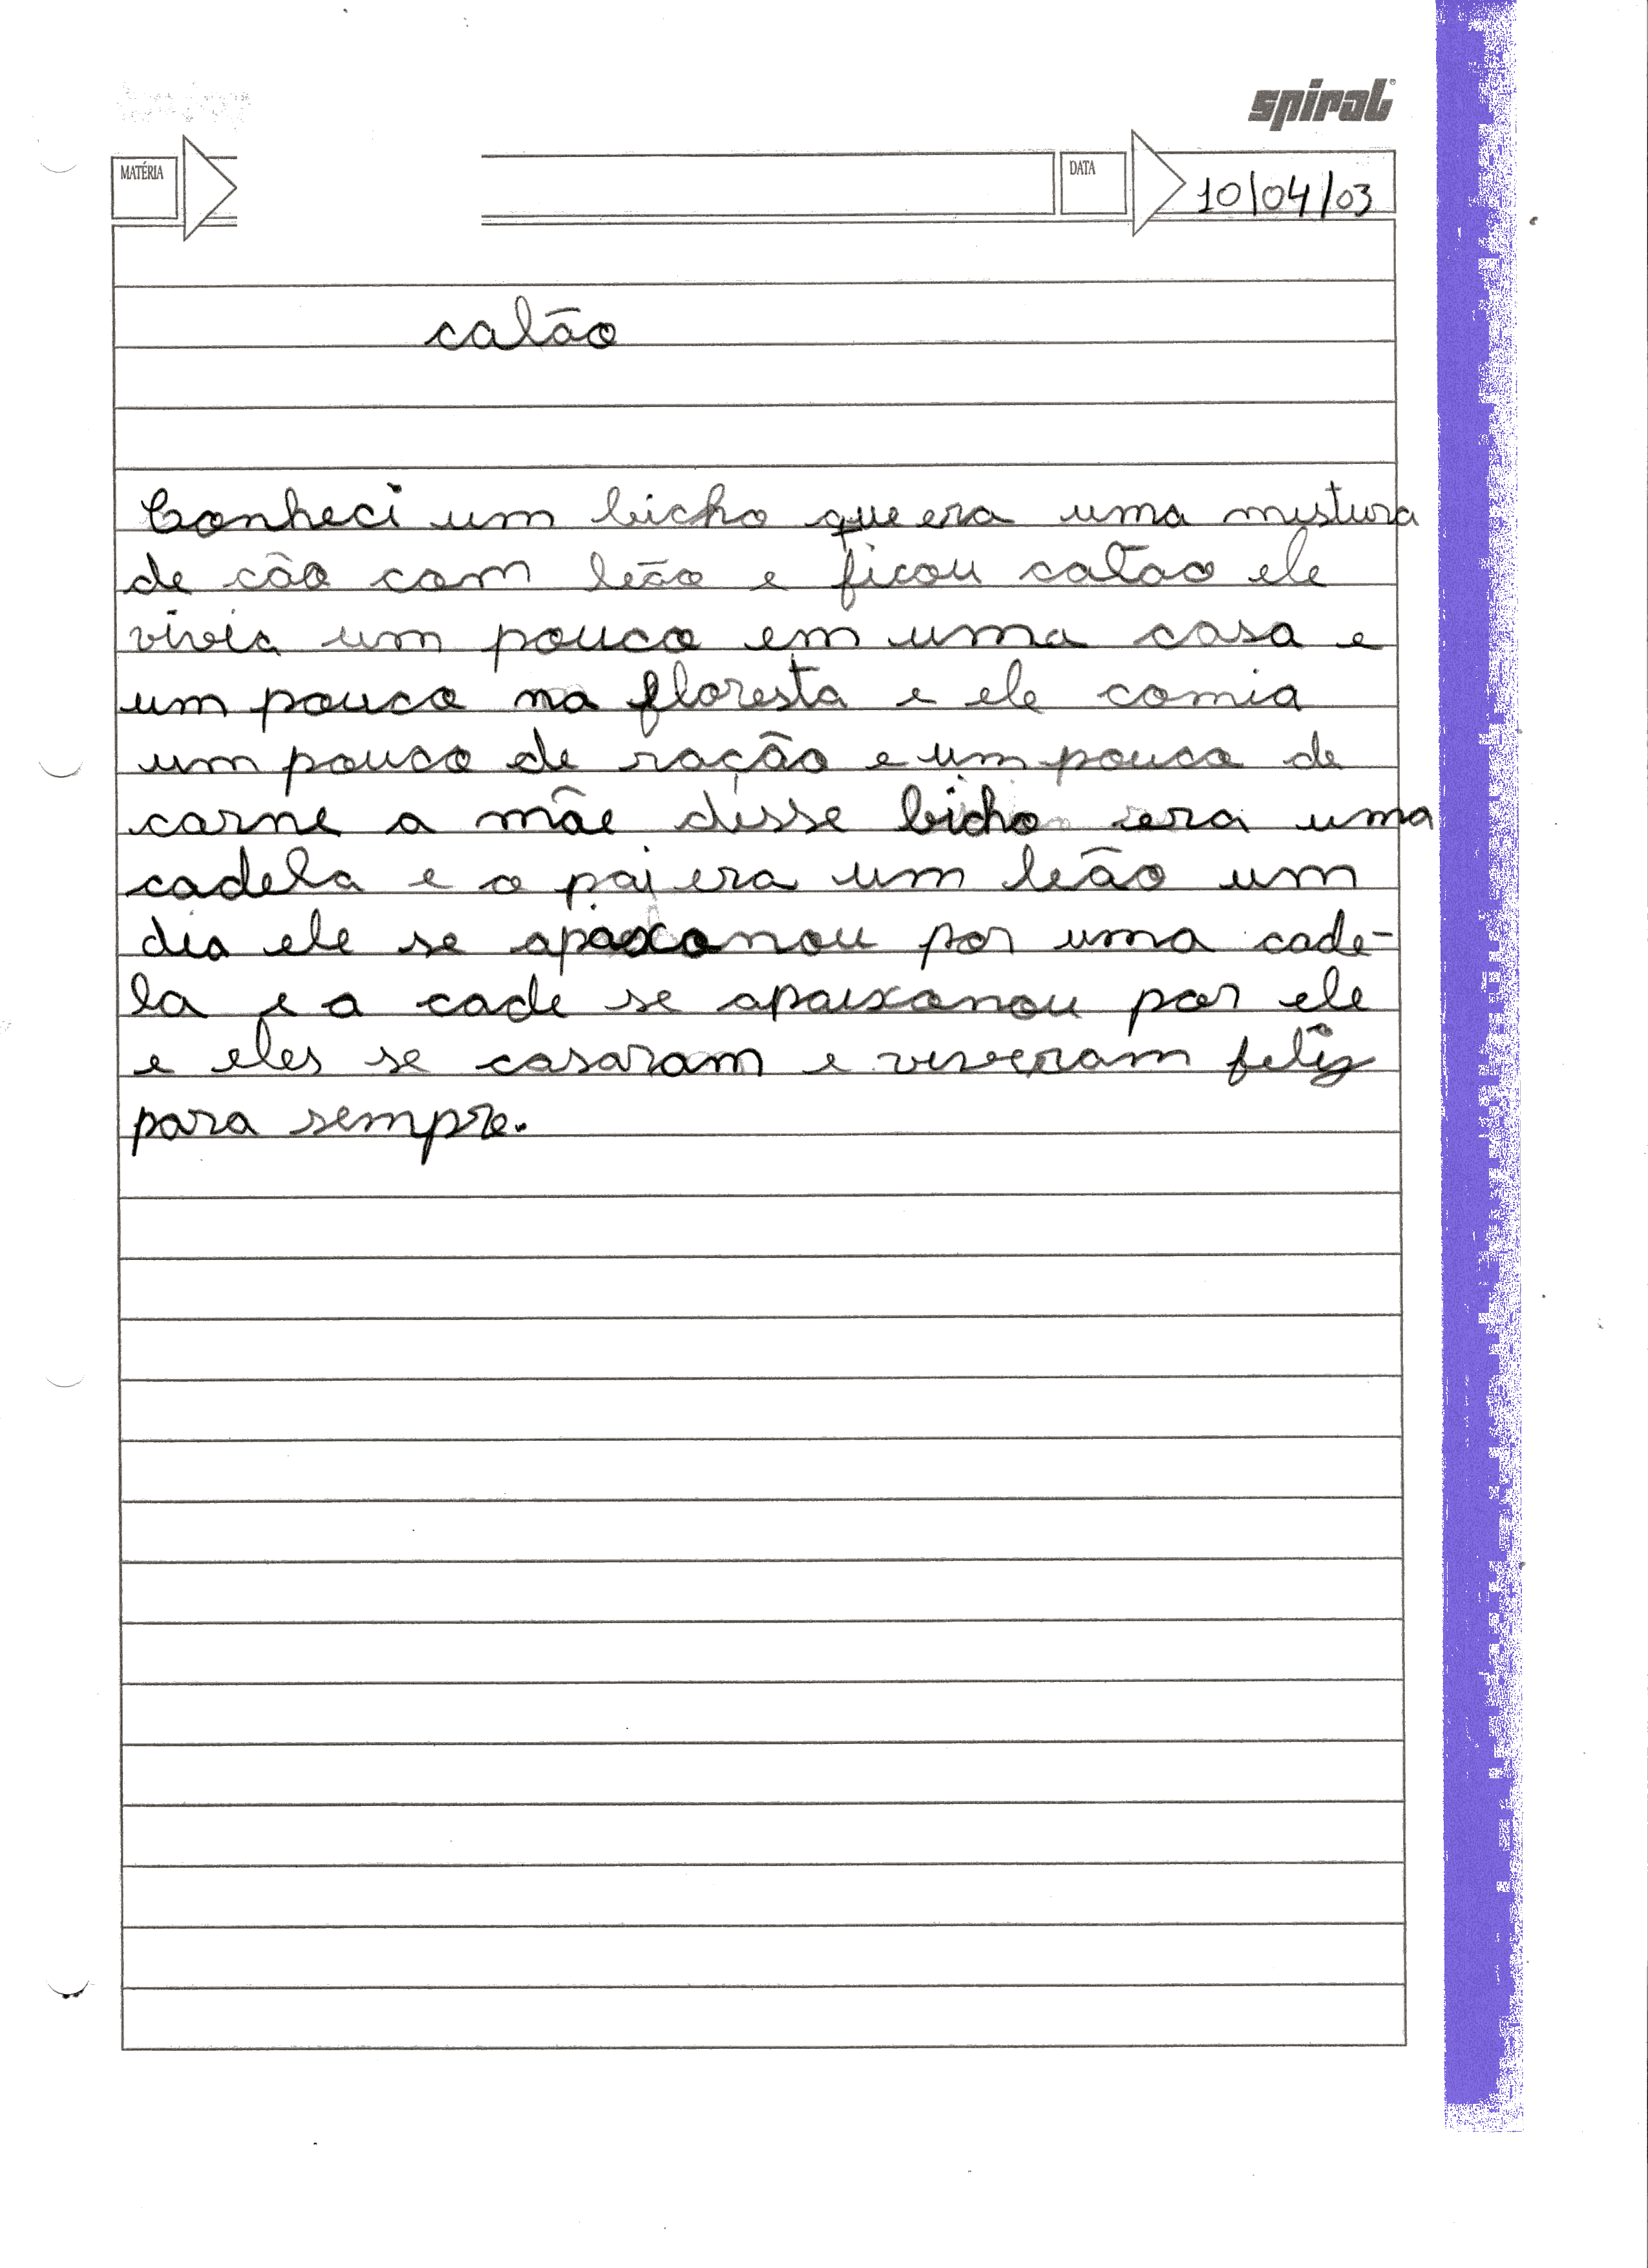 spiral
MATÉRIA
DATA
10/04/03
calão
Conheci um bicho que era uma mistura
de cão com leão e ficou calão ele
vivia um pouco em uma casa e
um pouco na floresta e ele comia
um pouco de ração e um pouco de
carne a mãe disse bicho era uma
cadela e o pai era um leão um
dia ele se apaixonou por uma cade-
la e a cade se apaixonou por ele
e eles se casaram e viveram feliz
para sempre.